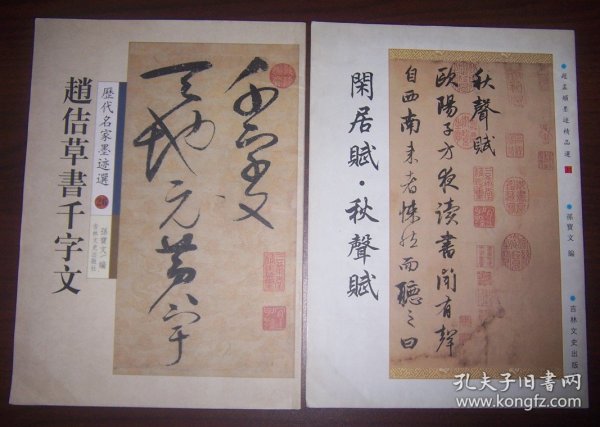 趙佶草書千字文
歷代名家墨迹選
20
孫寶文 編
吉林文史出版社
千字文
天地元黄宇
閑居賦·秋聲賦
秋聲賦
歐陽子方夜讀書聞有聲
自西南来者悚然而聽之曰
趙孟頫墨迹精品選
孫寶文 編
吉林文史出版
孔夫子旧书网
www.kongfz.com